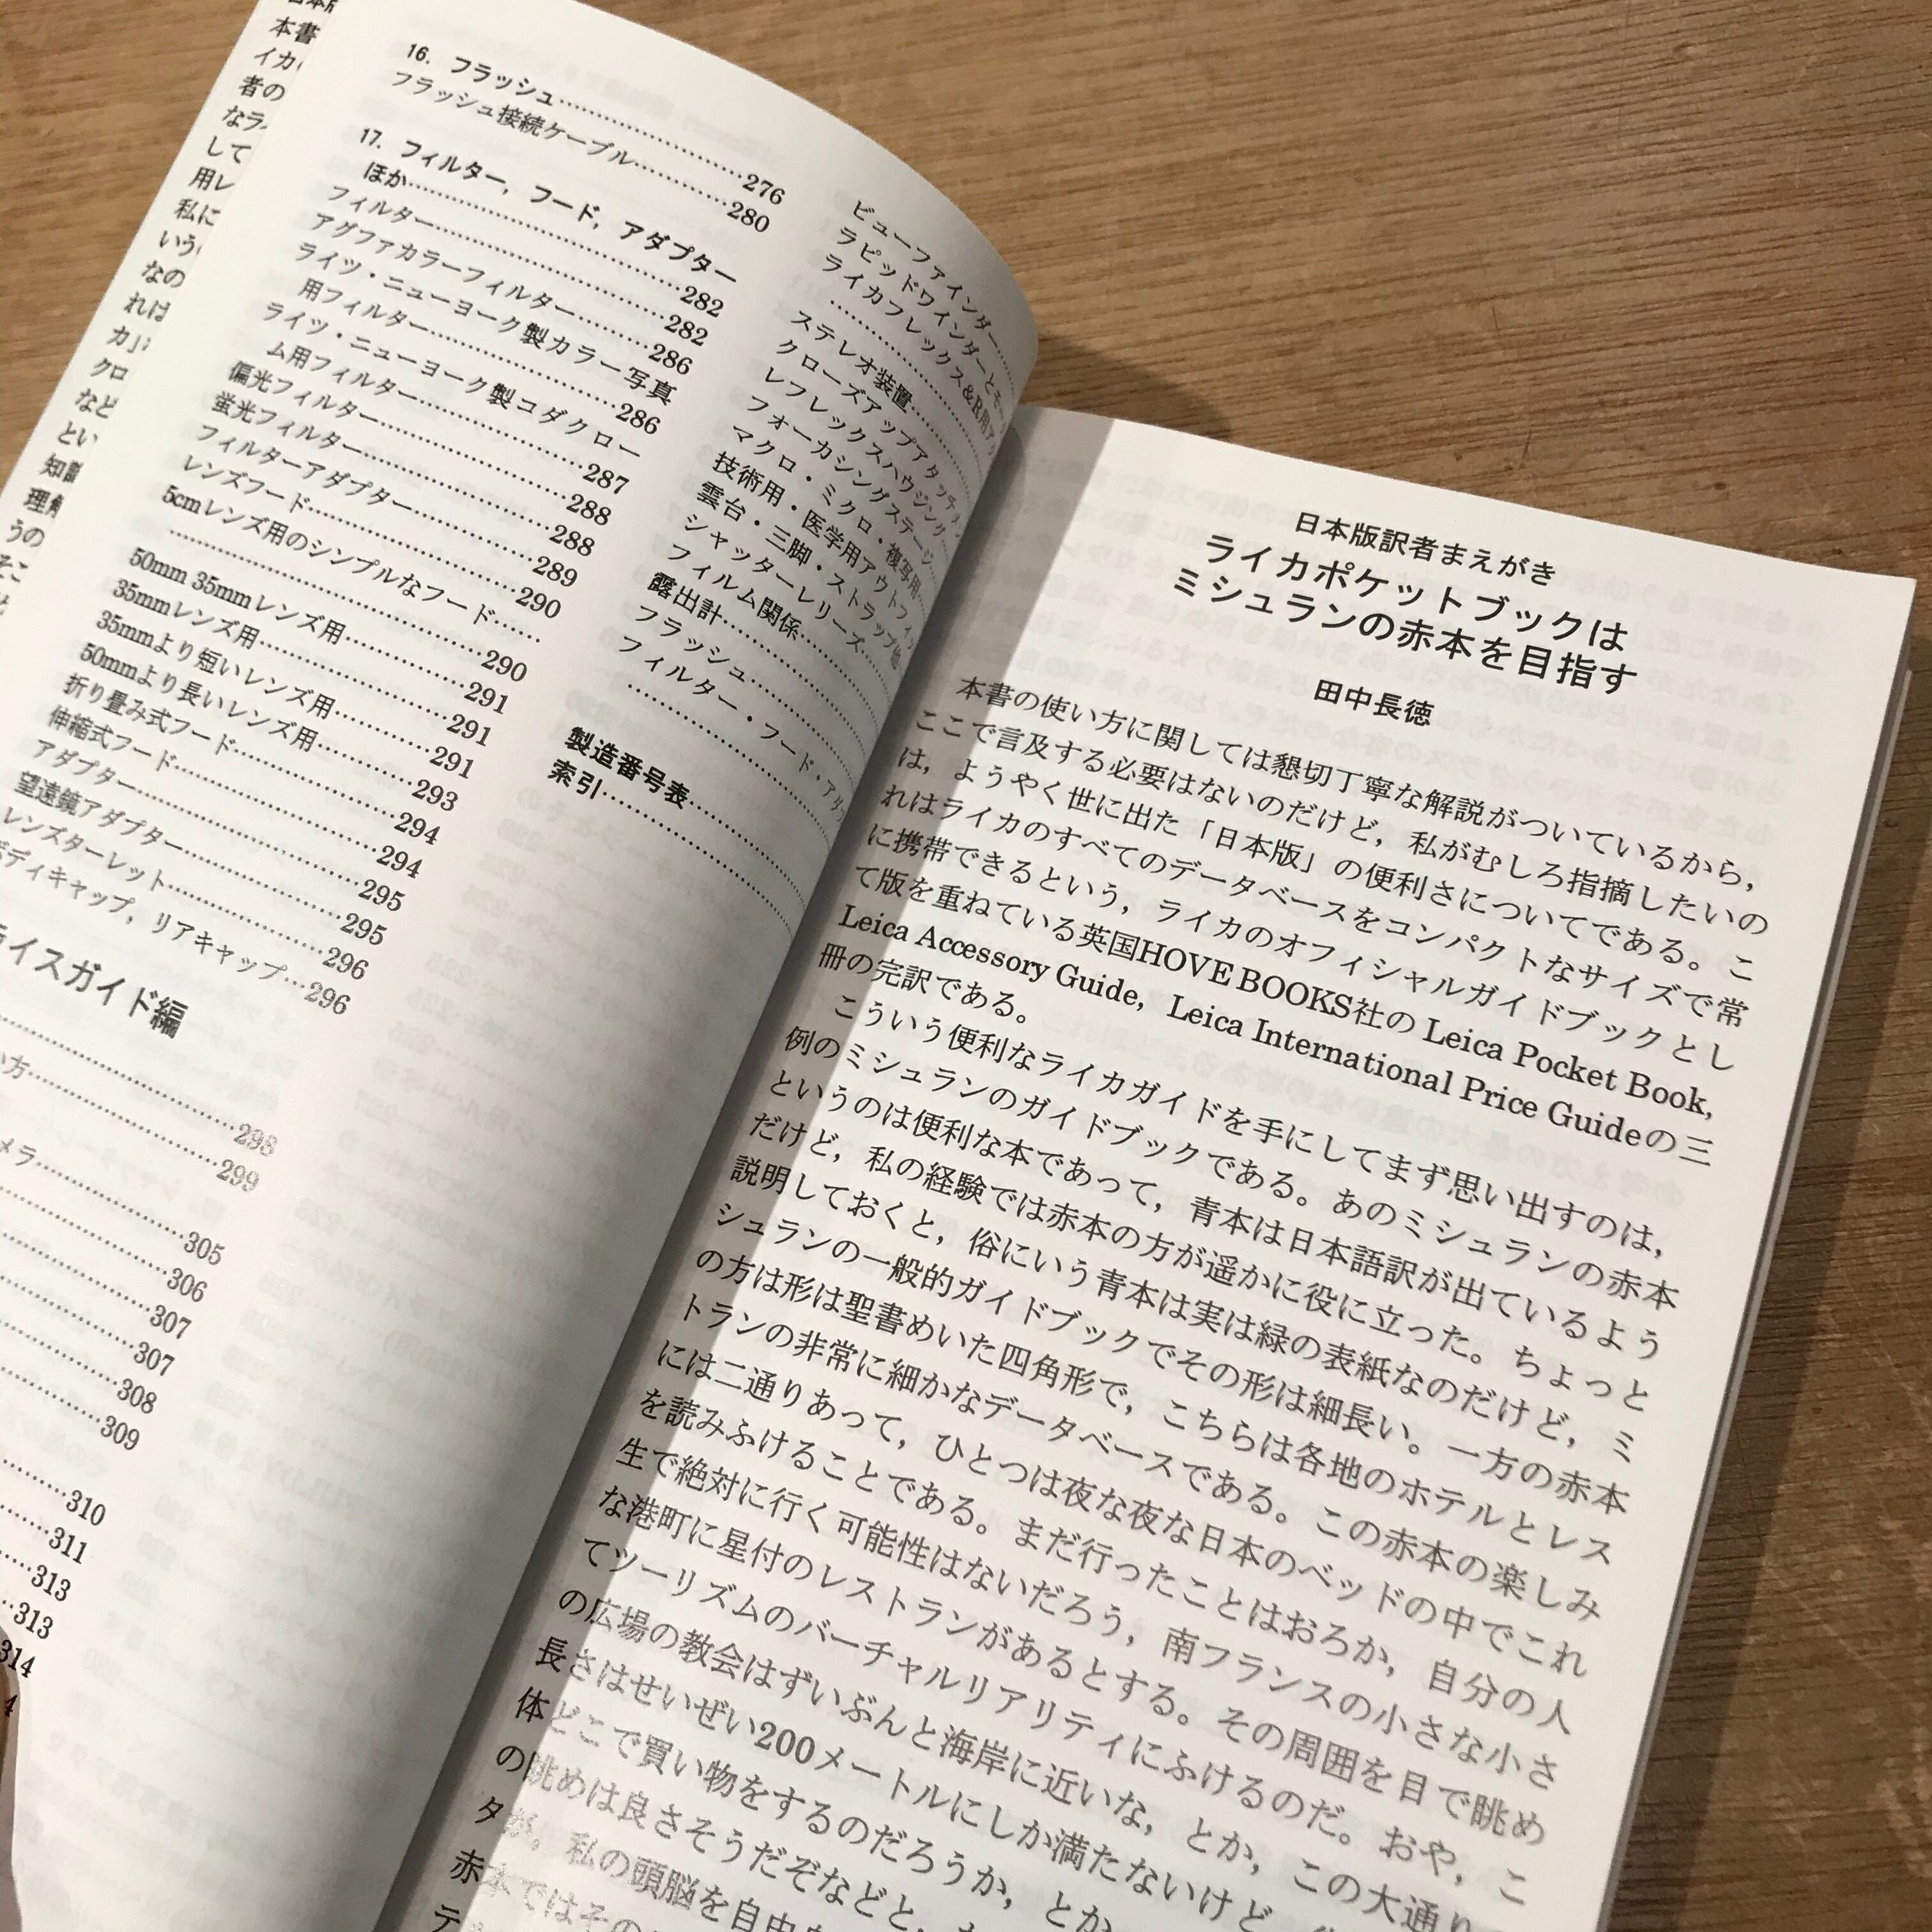 16. フラッシュ……276
フラッシュ接続ケーブル……280
17. フィルター，フード，アダプター
ほか……282
フィルター……282
アグファカラーフィルター……286
ライツ・ニューヨーク製カラー写真
用フィルター……286
ライツ・ニューヨーク製コダクロー
ム用フィルター……287
偏光フィルター……288
蛍光フィルター……288
フィルターアダプター……289
レンズフード……290
5cmレンズ用のシンプルなフード……
……290
50mm 35mmレンズ用……291
35mmレンズ用……291
35mmより短いレンズ用……291
50mmより長いレンズ用……293
折り畳み式フード……294
伸縮式フード……294
アダプター……295
望遠鏡アダプター……295
レンズターレット……296
ボディキャップ，リアキャップ…296
ライスガイド編
……298
い方……299
メラ……305
……306
……307
……307
……308
……309
……310
……311
……313
……313
314
ビューファインダー……
ラピッドワインダーとモー
ライカフレックス&R用ア
……
ステレオ装置……
クローズアップアタッチ
レフレックスハウジング
フォーカシングステージ
マクロ・ミクロ・複写用
技術用・医学用アウトフィ
雲台・三脚・ストラップ他
シャッターレリーズ……
フィルム関係……
露出計……
フラッシュ……
フィルター・フード・アダ
……
製造番号表……
索引……
日本版訳者まえがき
ライカポケットブックは
ミシュランの赤本を目指す
田中長徳
本書の使い方に関しては懇切丁寧な解説がついているから，
ここで言及する必要はないのだけど，私がむしろ指摘したいの
は，ようやく世に出た「日本版」の便利さについてである。こ
れはライカのすべてのデータベースをコンパクトなサイズで常
に携帯できるという，ライカのオフィシャルガイドブックとし
て版を重ねている英国HOVE BOOKS社の Leica Pocket Book,
Leica Accessory Guide, Leica International Price Guideの三
冊の完訳である。
こういう便利なライカガイドを手にしてまず思い出すのは，
例のミシュランのガイドブックである。あのミシュランの赤本
というのは便利な本であって，青本は日本語訳が出ているよう
だけど，私の経験では赤本の方が遥かに役に立った。ちょっと
説明しておくと，俗にいう青本は実は緑の表紙なのだけど，ミ
シュランの一般的ガイドブックでその形は細長い。一方の赤本
の方は形は聖書めいた四角形で，こちらは各地のホテルとレス
トランの非常に細かなデータベースである。この赤本の楽しみ
には二通りあって，ひとつは夜な夜な日本のベッドの中でこれ
を読みふけることである。まだ行ったことはおろか，自分の人
生で絶対に行く可能性はないだろう，南フランスの小さな小さ
な港町に星付のレストランがあるとする。その周囲を目で眺め
てツーリズムのバーチャルリアリティにふけるのだ。おや，こ
の広場の教会はずいぶんと海岸に近いな，とか，この大通り
長さはせいぜい200メートルにしか満たないけど
体どこで買い物をするのだろうか，とか
の眺めは良さそうだぞなどと，
タが，私の頭脳を自由
赤本ではその